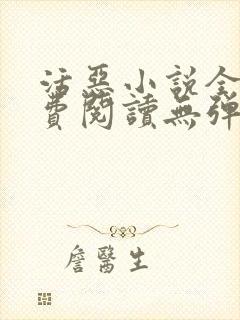 活惡小說全
費閱讀無彈
詹醫生